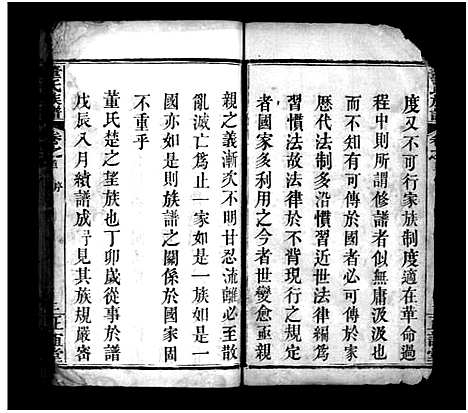 度又不可行家族制度適在革命過
程中則所謂修譜者似無庸汲汲也
而不知有可傳於國者必可傳於族
歷代法制多沿慣習近世法律編為
習慣法故法律於現行之規定
者國家多利用之今者世變愈亟親
親之義漸次不明甘忍流離必至散
亂滅亡為止一家如是一族如是一
國亦如是族譜之關係於國家固
不重乎
董氏楚之望族也丁卯歲從事於譜
戊辰八月續譜成予見其族規嚴密
董氏族譜
卷之首
序
三
正誼堂